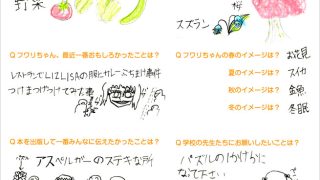 野菜
スズラン
梅
Q フワリちゃん、最近一番おもしろかったことは?
レストランでLIZLISAの服にカレーぶちまけ事件
つけまつげつけて大変
Q フゥリちゃんの春のイメージは? お花見
夏のイメージは? スイカ
秋のイメージは? 金魚
冬のイメージは? 冬眠
Q 本を出版して一番みんなに伝えたかったことは?
アスペルガーのステキな所
Q 学校の先生たちにお願いしたいことは?
パズルのかけらに
なて下さい